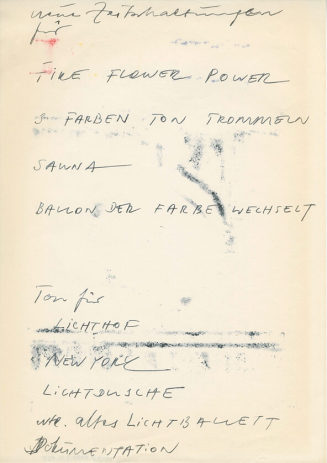 neue Zeitschaltungen
für
FIRE FLOWER POWER
FARBEN TON TROMMELN
SAUNA
BALLON DER FARBE WECHSELT
Ton für
LICHTHOF
NEW YORK
LICHTDUSCHE
altes LICHTBALLETT
DOKUMENTATION